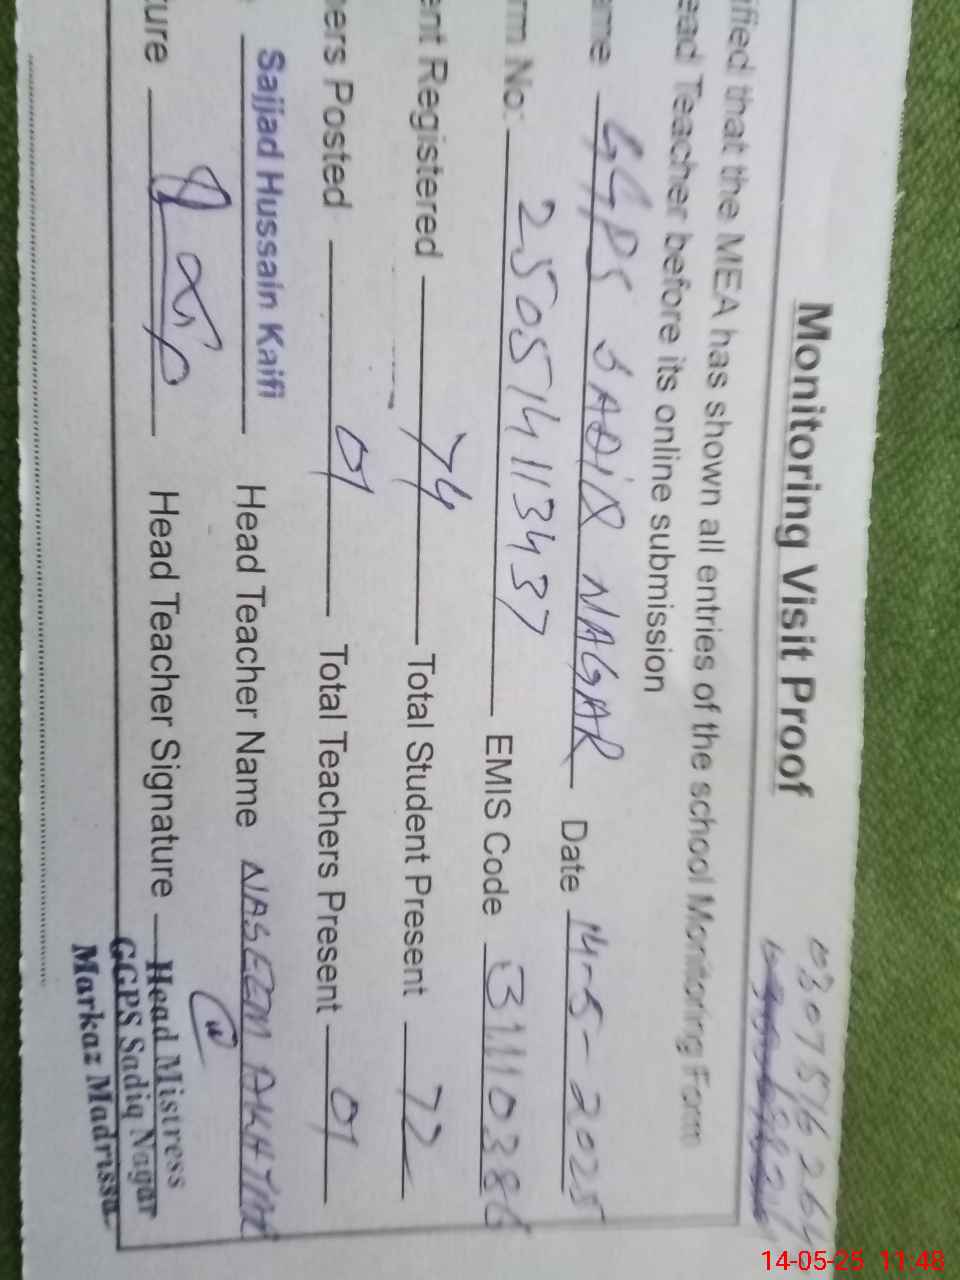 03075162644
Monitoring Visit Proof
ified that the MEA has shown all entries of the school Monitoring Form
ead Teacher before its online submission
ame GGPS SADIQ NAGAR Date 14-5-2025
rm No: 2505141134 37 EMIS Code 31110386
ent Registered 74 Total Student Present 72
ers Posted 01 Total Teachers Present 01
Sajjad Hussain Kaifi Head Teacher Name NASEEM AKHTAR
ture Head Teacher Signature
Head Mistress
GGPS Sadiq Nagar
Markaz Madrissa
14-05-25 11:48